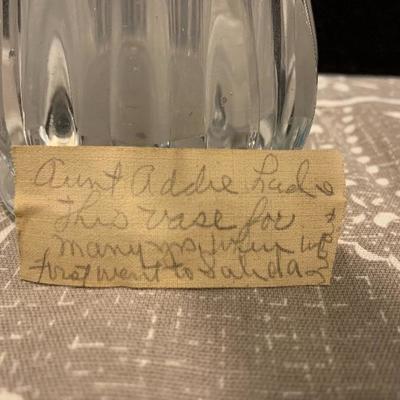 Aunt Addie had
this vase for
many yrs, when we
first went to Salida